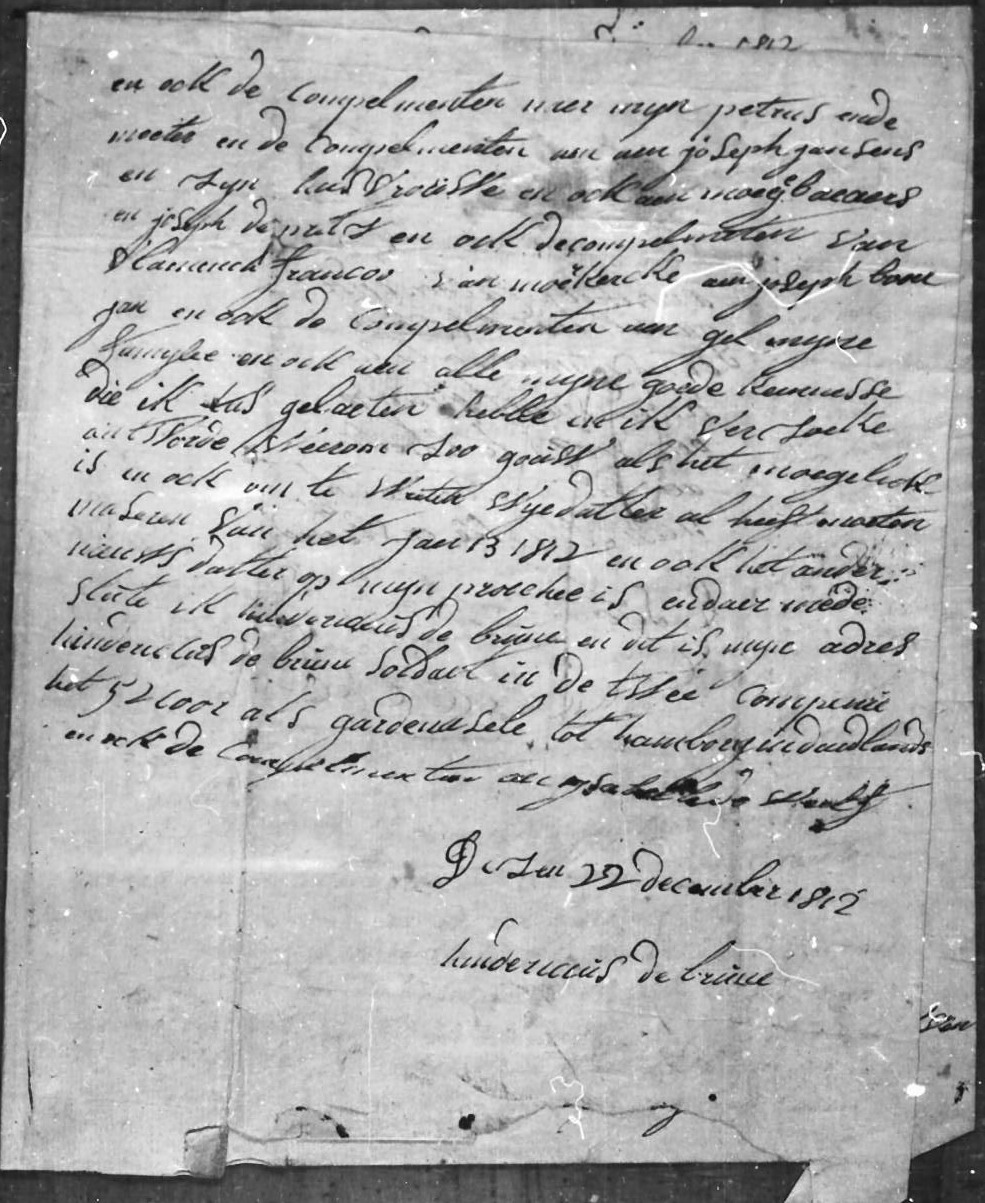 1812
en ook de Compelmenten aer myn petrus ende
moeter en de Compelmenten aen aen joseph jansens
en syn huisvrouwe en ook aen moey baeaers
en joseph de en ook decompelmeten van
vlaminck francos van moekercke aen joseph boone
jan en ook de Compelmenten aen gel myne
famylie en ook aen alle myne goede kennisse
die ik gelaeten hebbe en ik versoeke
antworde weerom soo gouw als het moegelick
is en ook om te weten wyedatter al heeft moeten
maseren van het jaer 13 1812 en ook het ander
nieuws datter op myn prochee is endaer mede
slute ik hinderickus de brune en dit is myn adres
hinderickus de brune soldaet in de twee Compenie
het 52 coor als gardenasele tot hamborg in duudlands
en ook de Compelmenten aen
Desen 22 december 1812
hinderickus de brune